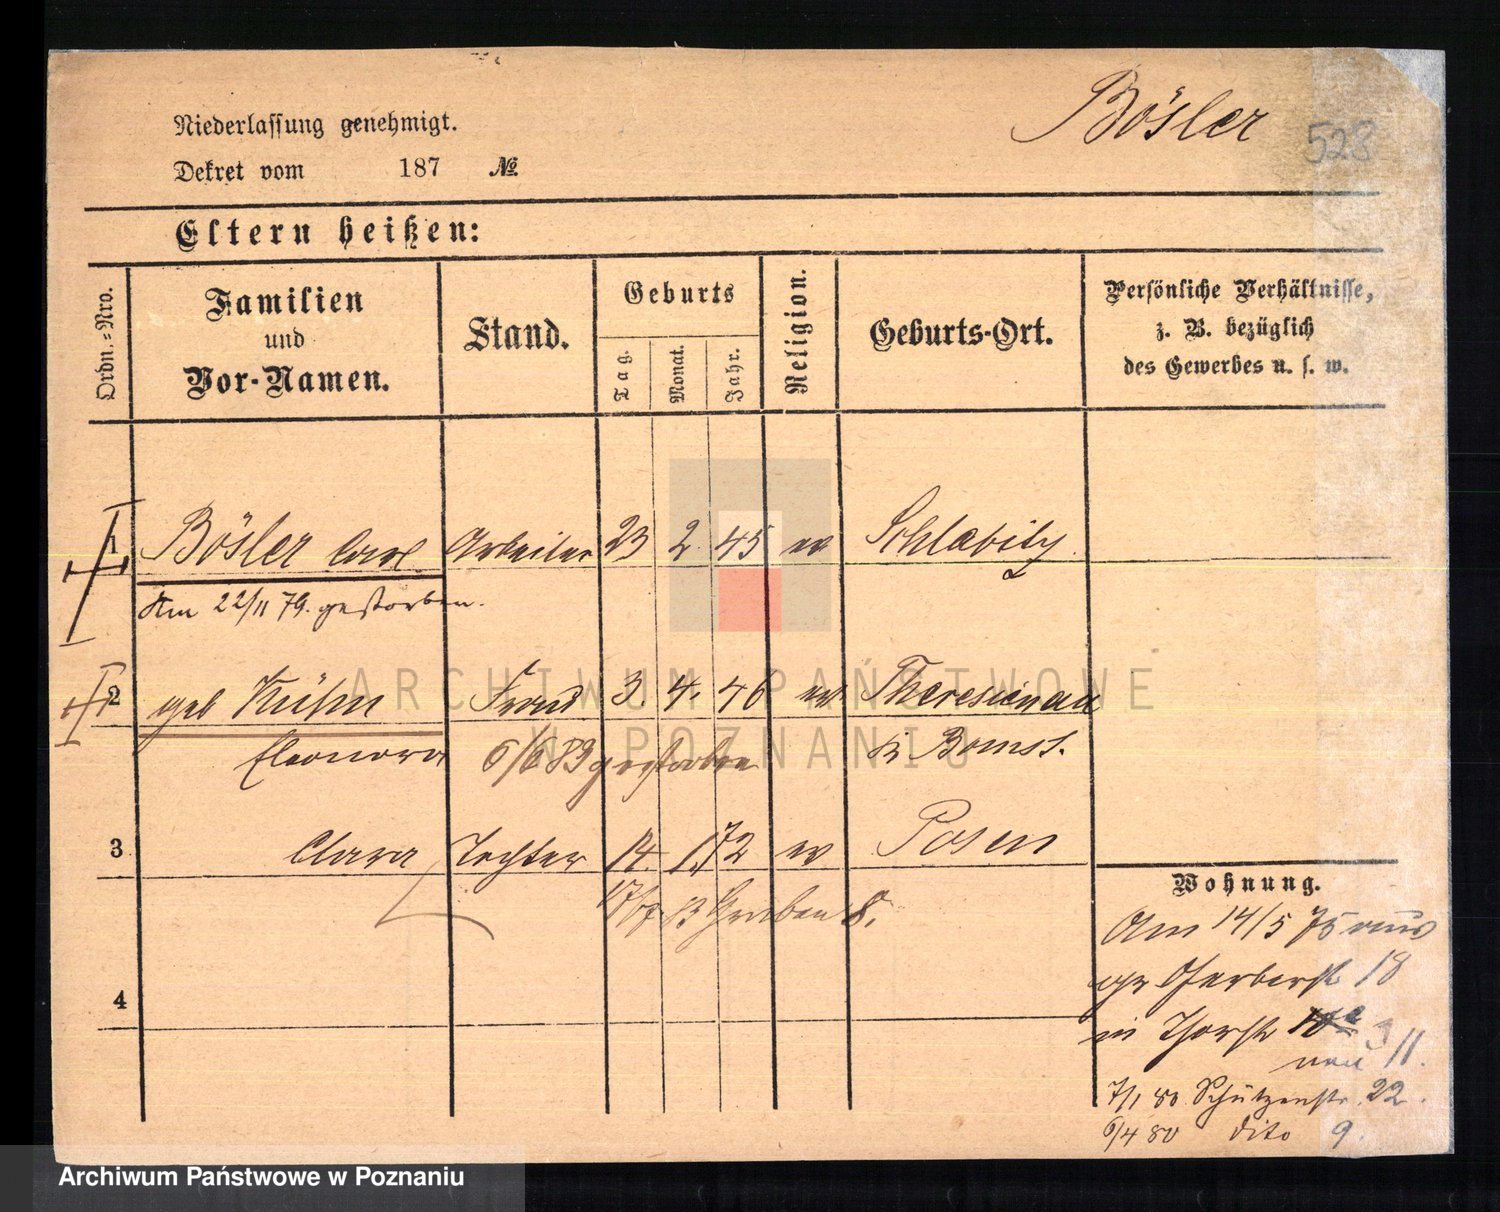 Bösler 528
Niederlassung genehmigt.
Dekret vom 187 №
Eltern heißen:
Ordn.=Nro.
Familien
und
Vor-Namen.
Stand.
Geburts
Tag.
Monat.
Jahr.
Religion.
Geburts-Ort.
Persönliche Verhältnisse,
z. B. bezüglich
des Gewerbes u. s. w.
1 Bösler Carl Arbeiter 23 2 45 ev
Am 22/11 79. gestorben.
2 geb Kühn Frau 3. 4. 46 ev Theresienau
Eleonora 6/6 83 gestorben Kr. Bomst.
3 Clara Tochter 14. 1. 72 ev Posen
Graben 8.
4
Wohnung.
Am 14/5 75 aus
gr Gerberstr 18
in Thorstr
neu 11.
7/1 80 Schützenstr. 22.
6/4 80 dito 9.
ARCHIWUM PAŃSTWOWE
W POZNANIU
Archiwum Państwowe w Poznaniu